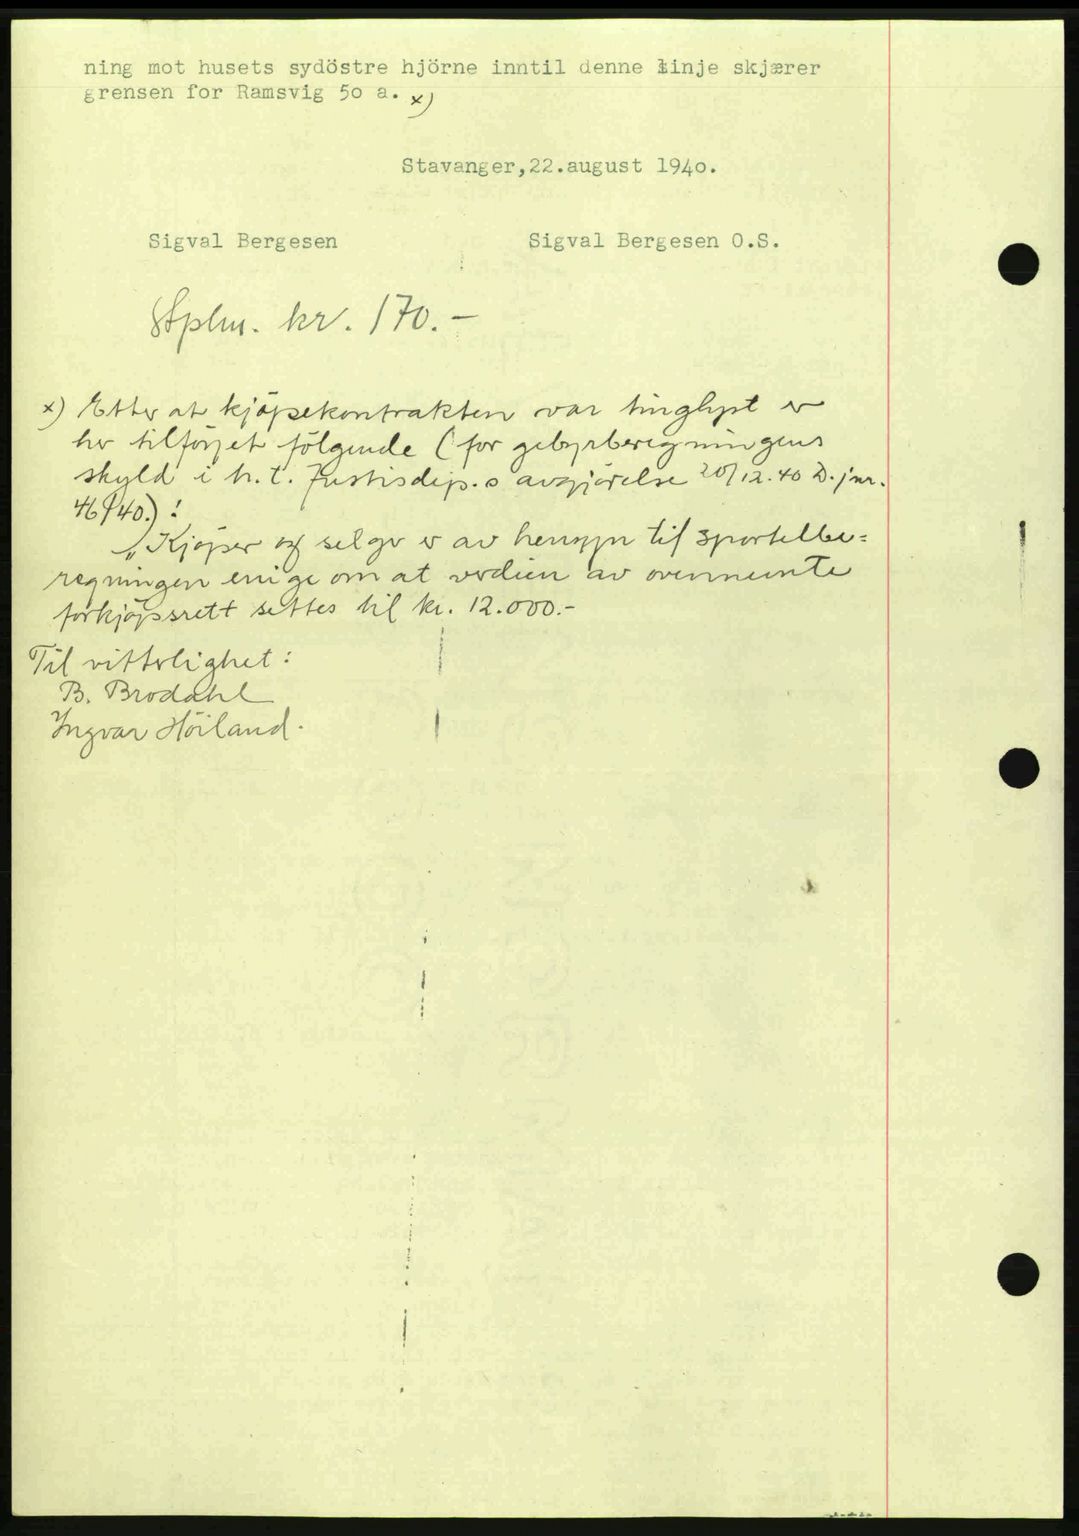 ning mot husets sydöstre hjörne inntil denne linje skjærer
grensen for Ramsvig 5o a. x)
Stavanger,22.august 194o.
Sigval Bergesen Sigval Bergesen O.S.
Stplm. kr. 170.-
x) Etter at kjöpsekontrakten var tinglyst er
her tilföyet fölgende (for gebyrberegningens
skyld i h.t. Justisdep.s avgjörelse 20/12.40 D. jnr.
46/40.):
"Kjöper og selger er av hensyn til sportelbe=
regningen enige om at verdien av ovennevnte
forkjöpsrett settes til kr. 12.000.-
Til vitterlighet:
B. Brodahl
Yngvar Höiland.